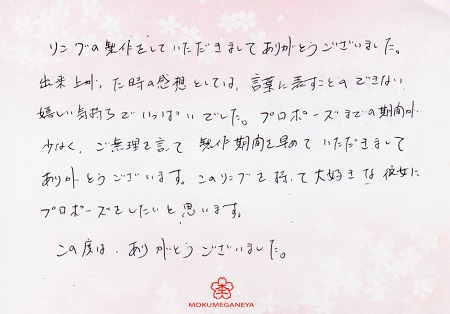 リングの製作をしていただきましてありがとうございました。
出来上がった時の感想としては、言葉に表すことのできない
嬉しい気持ちでいっぱいでした。プロポーズまでの期間が
少なく、ご無理を言って製作期間を早めていただきまして
ありがとうございます。このリングを持って大好きな彼女に
プロポーズをしたいと思います。
この度は、ありがとうございました。
MOKUMEGANEYA